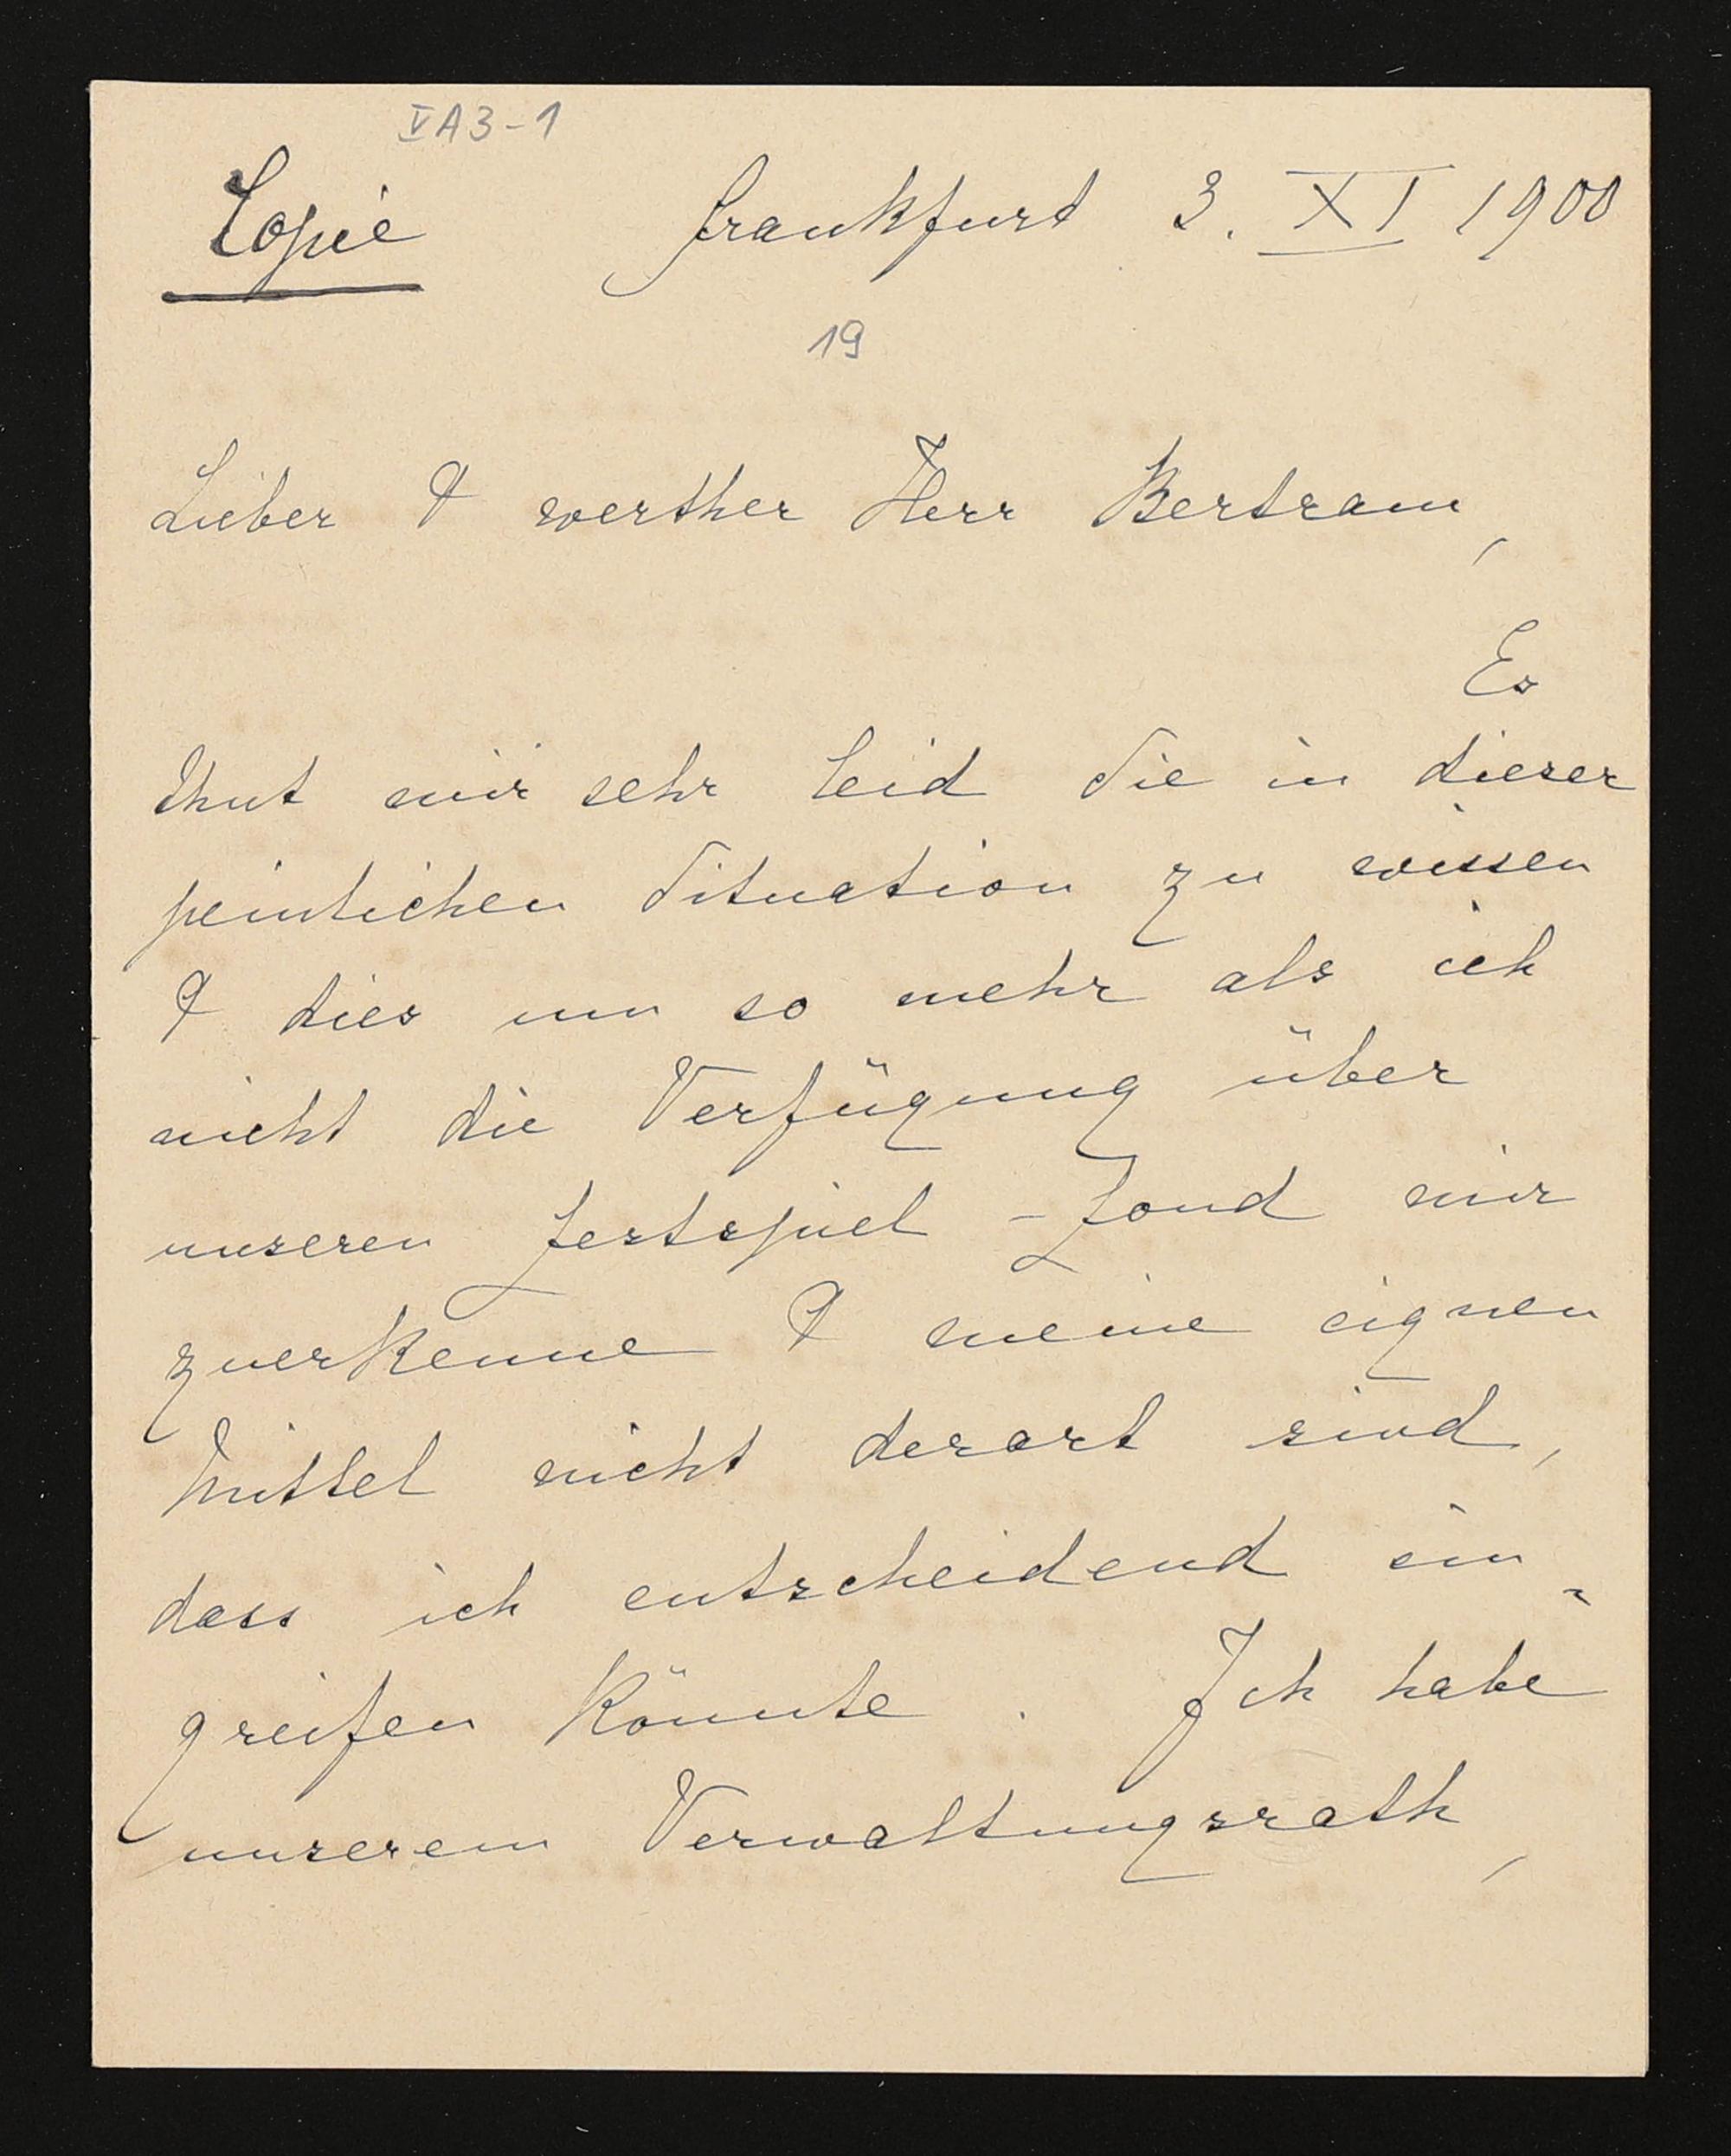 V A 3 - 1
Copie Frankfurt 3. XI 1900
19
Lieber & werther Herr Bertram,
Es
thut mir sehr leid Sie in dieser
peinlichen Situation zu wissen
& dies um so mehr als ich
nicht die Verfügung über
unseren Festspiel-Fond mir
zuerkenne & meine eignen
Mittel nicht derart sind,
dass ich entscheidend ein-
greifen könnte. Ich habe
unserem Verwaltungsrath,